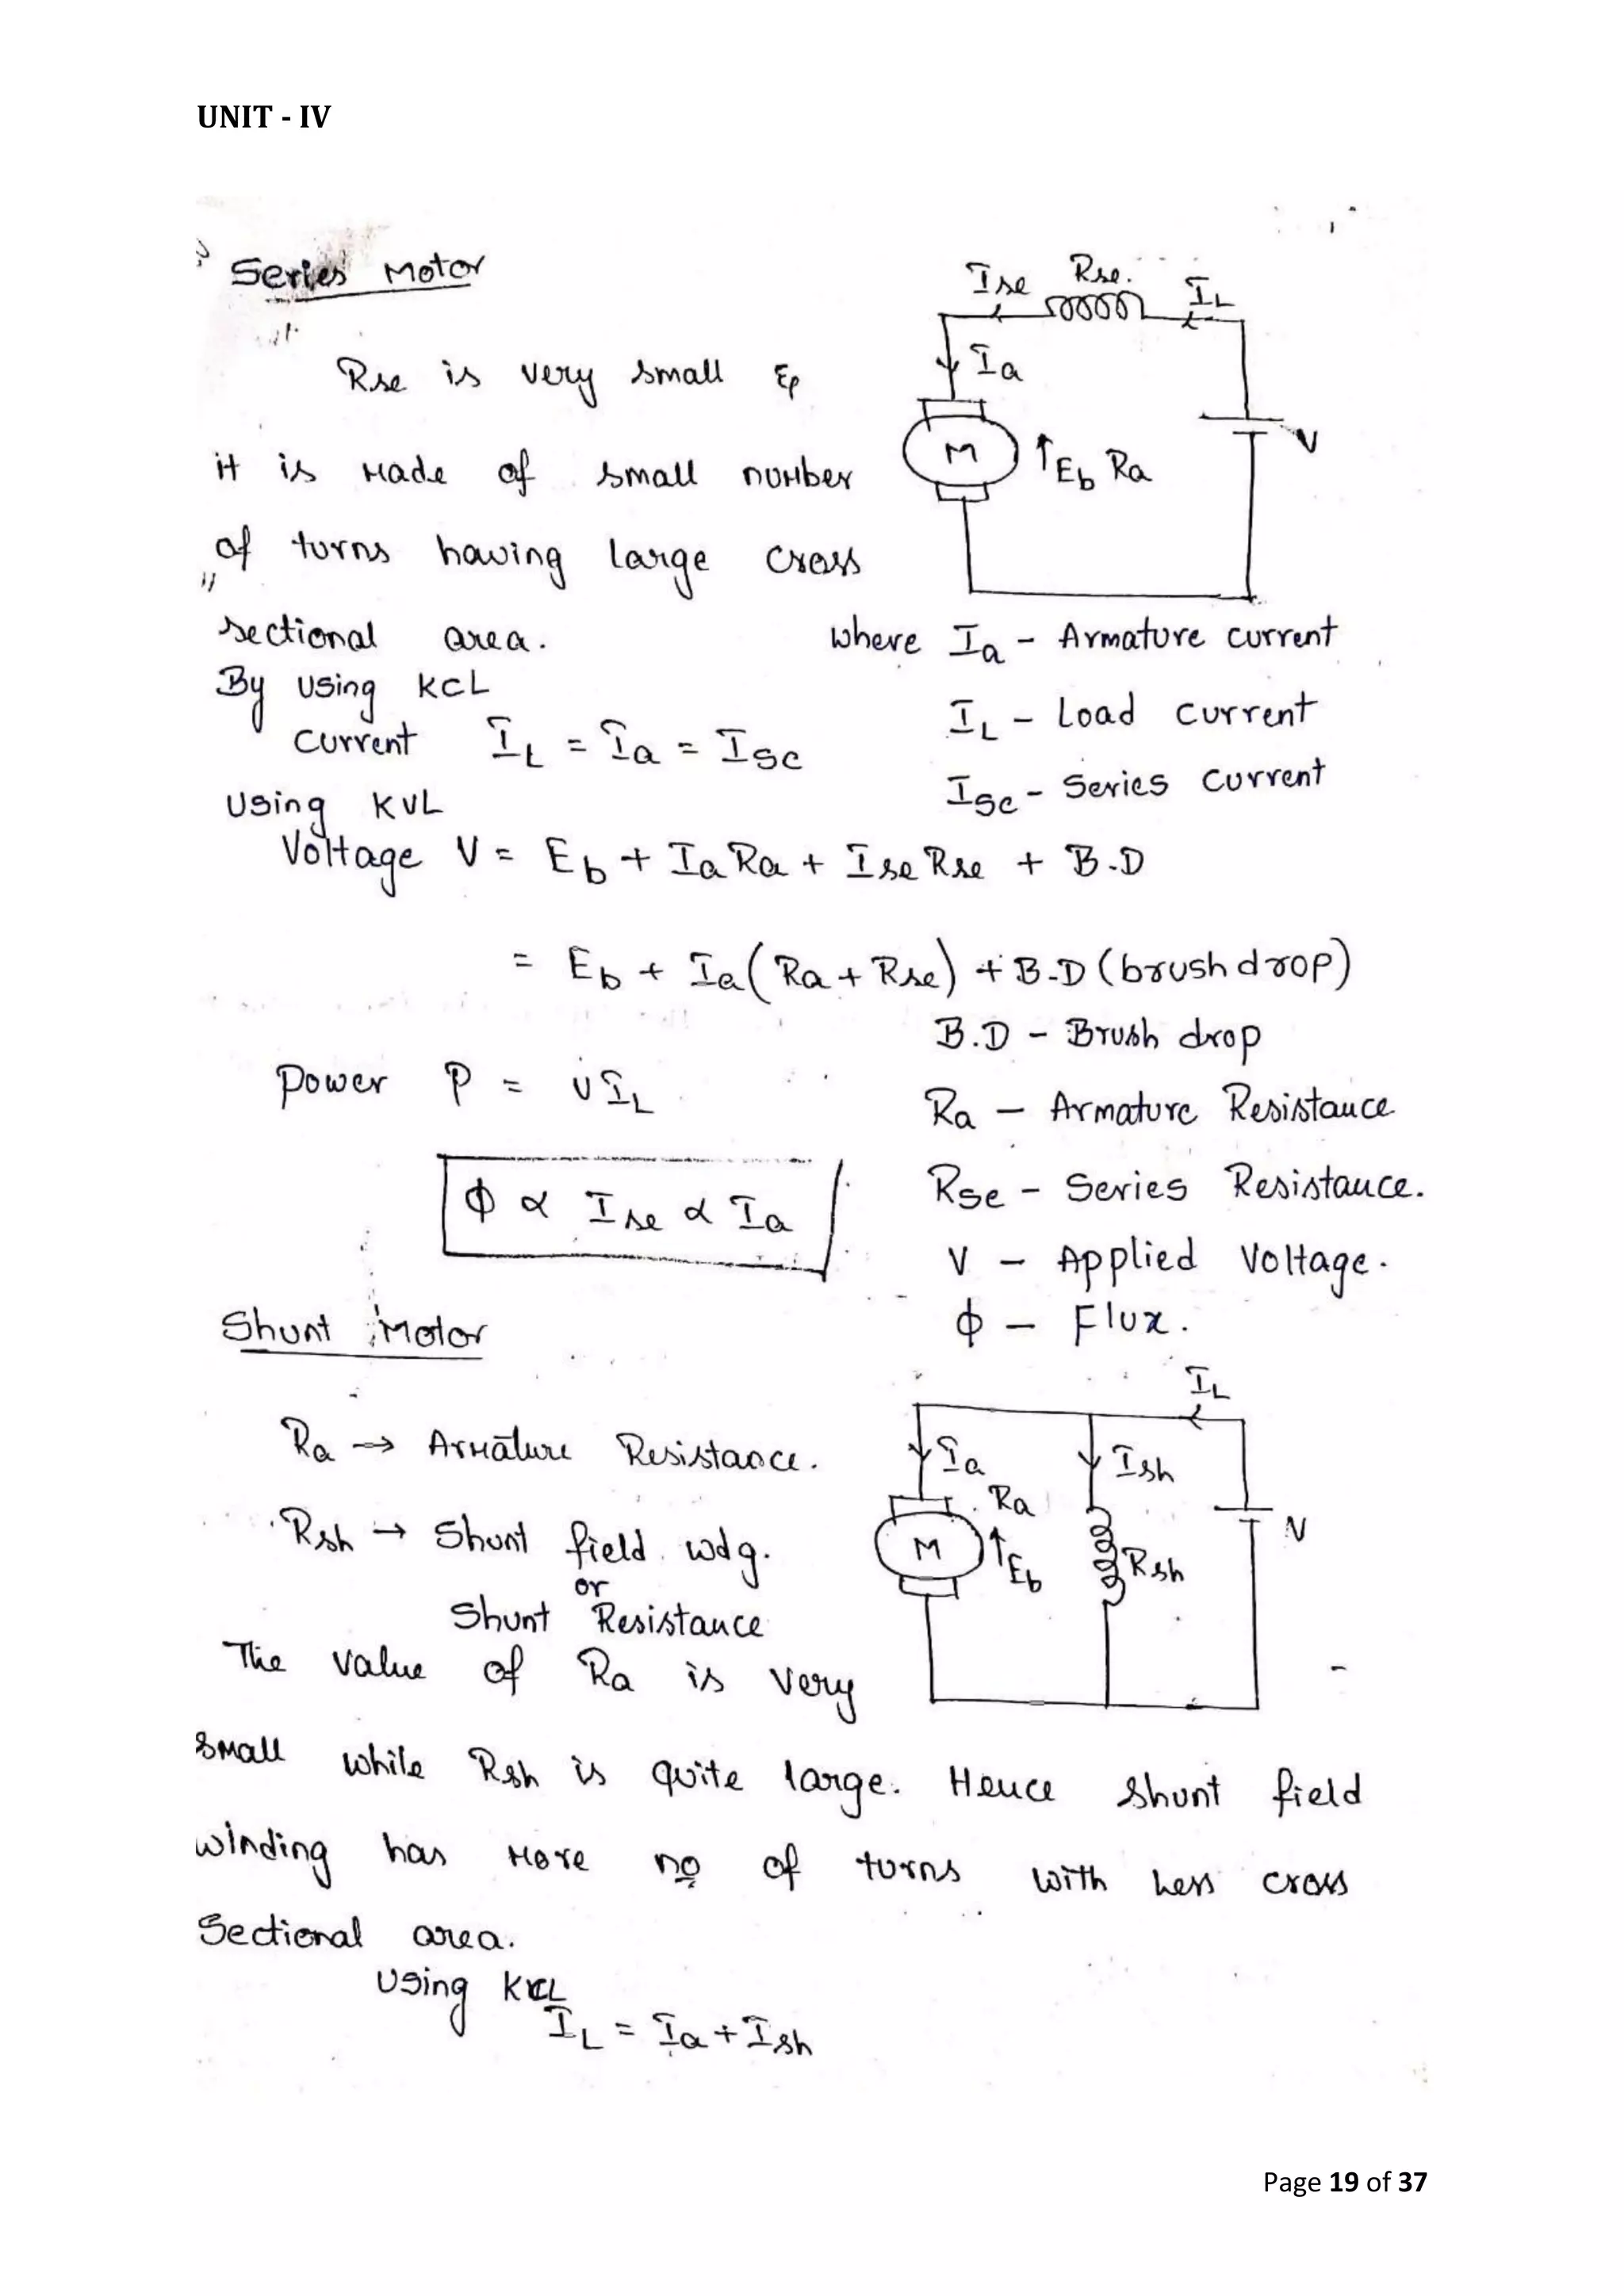 UNIT - IV
Series Motor
Ise Rse. IL
Ia
M Eb Ra
V
Rse is very small &
it is Made of small number
of turns having large cross
sectional area.
where Ia - Armature current
IL - Load current
Ise - Series current
By using KCL
current IL = Ia = Ise
Using KVL
Voltage V = Eb + IaRa + IseRse + B.D
= Eb + Ia(Ra + Rse) + B.D (brush drop)
B.D - Brush drop
Power P = VIL
Ra - Armature Resistance
Rse - Series Resistance.
ϕ ∝ Ise ∝ Ia
V - Applied Voltage.
ϕ - Flux.
Shunt Motor
IL
Ia Ish
Ra
M Eb Rsh
V
Ra → Armature Resistance.
Rsh → Shunt field wdg.
or
Shunt Resistance
The value of Ra is very
small while Rsh is quite large. Hence shunt field
winding has more no of turns with less cross
Sectional area.
Using KCL
IL = Ia + Ish
Page 19 of 37